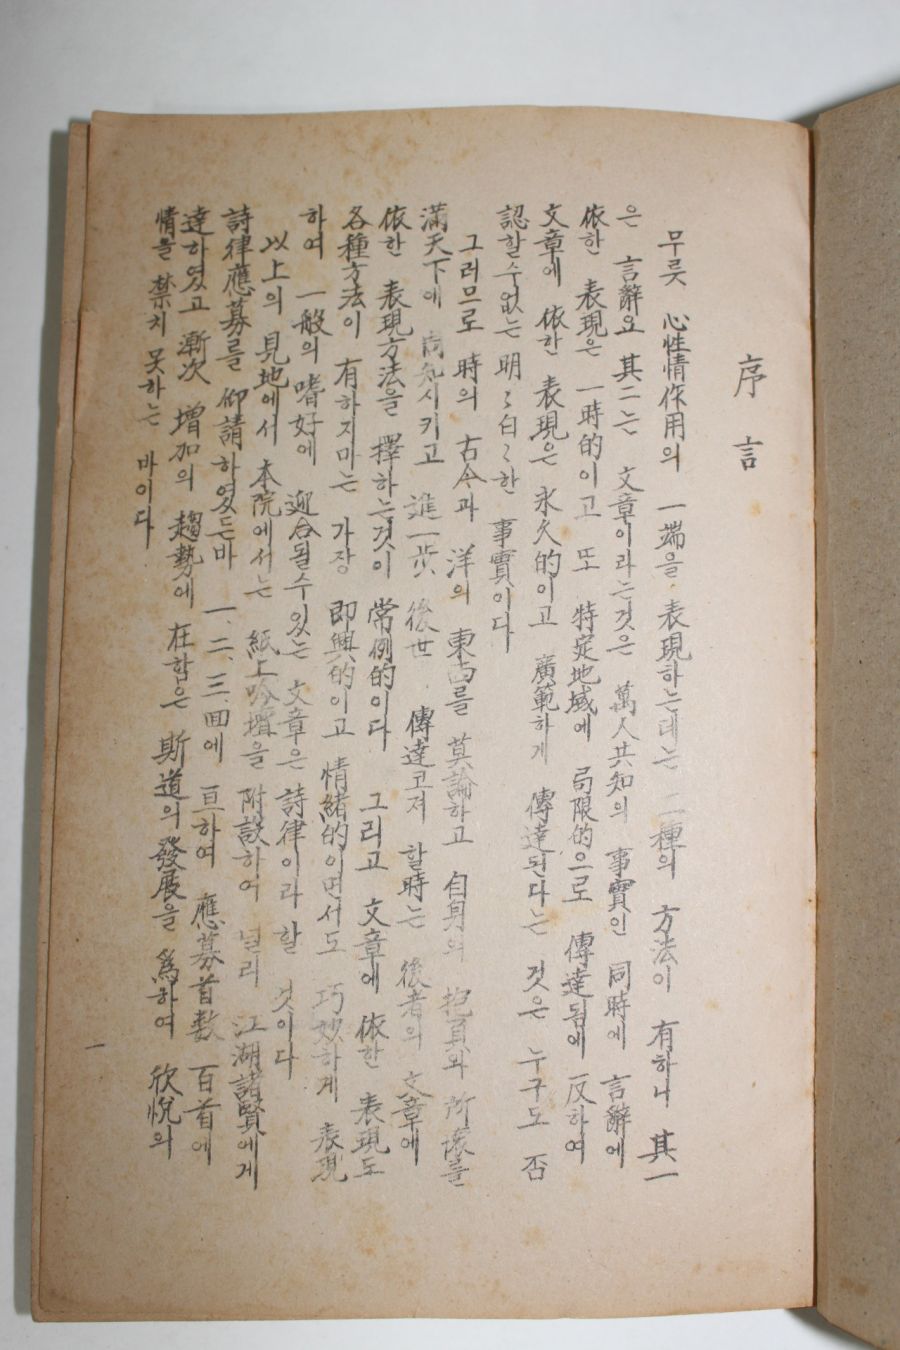 序言
무릇 心性情作用의 一端을 表現하는데는 二種의 方法이 有하니 其一
은 言辭요 其二는 文章이라는것은 萬人共知의 事實인 同時에 言辭에
依한 表現은 一時的이고 또 特定地域에 局限的으로 傳達됨에 反하여
文章에 依한 表現은 永久的이고 廣範하게 傳達된다는 것은 누구도 否
認할수없는 明〻白〻한 事實이다
그러므로 時의 古今과 洋의 東西를 莫論하고 自身의 抱負와 所懷를
滿天下에 周知시키고 進一步 後世 傳達코저 할時는 後者의 文章에
依한 表現方法을 擇하는것이 常例的이다 그리고 文章에 依한 表現도
各種方法이 有하지마는 가장 即興的이고 情緖的이면서도 巧妙하게 表現
하여 一般의 嗜好에 迎合될수있는 文章은 詩律이라 할 것이다
以上의 見地에서 本院에서는 紙上吟壇을 附設하여 널리 江湖諸賢에게
詩律應募를 仰請하였든바 一、二、三、回에 亘하여 應募首数 百首에
達하였고 漸次 增加의 趨勢에 在함은 斯道의 發展을 爲하여 欣悅의
情을 禁치 못하는 바이다
一